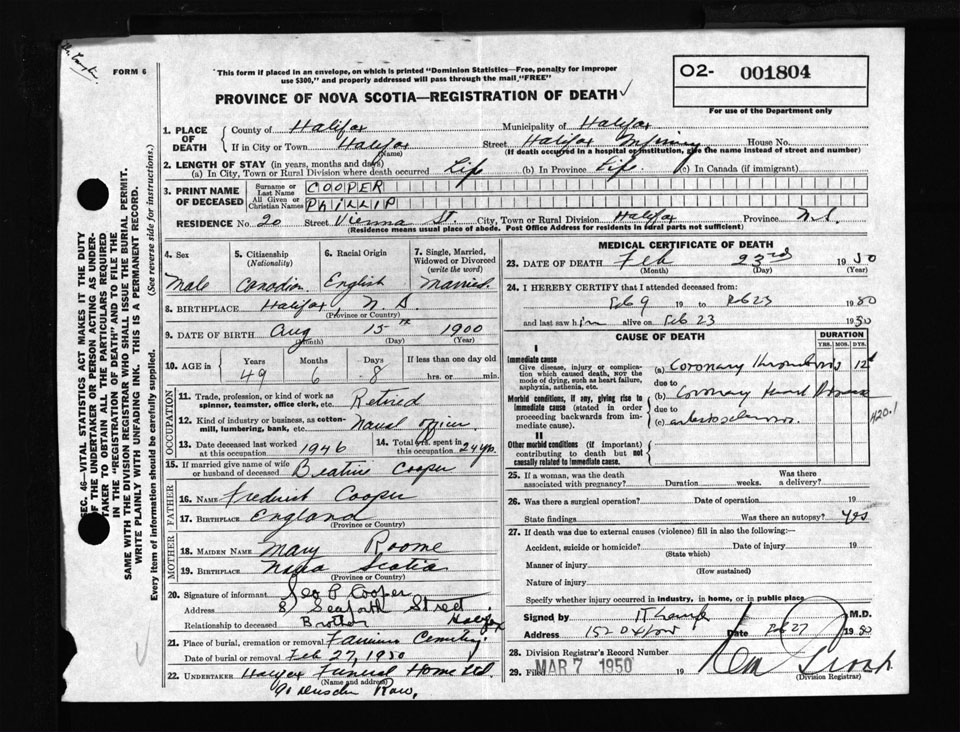 FORM 6
This form if placed in an envelope, on which is printed "Dominion Statistics—Free, penalty for improper
use $300," and properly addressed will pass through the mail "FREE"
PROVINCE OF NOVA SCOTIA—REGISTRATION OF DEATH ✓
O2- 001804
For use of the Department only
SEC. 46—VITAL STATISTICS ACT MAKES IT THE DUTY
OF THE UNDERTAKER OR PERSON ACTING AS UNDER-
TAKER TO OBTAIN ALL THE PARTICULARS REQUIRED
IN THE "REGISTRATION OF DEATH" AND TO FILE THE
SAME WITH THE DIVISION REGISTRAR WHO SHALL ISSUE THE BURIAL PERMIT.
WRITE PLAINLY WITH UNFADING INK. THIS IS A PERMANENT RECORD.
Every item of information should be carefully supplied. (See reverse side for instructions.)
1. PLACE OF DEATH County of Halifax Municipality of Halifax
If in City or Town Halifax Street Halifax Infirmary House No.
(Name) (If death occurred in a hospital or institution, give the name instead of street and number)
2. LENGTH OF STAY (in years, months and days)
(a) In City, Town or Rural Division where death occurred Life (b) In Province Life (c) In Canada (if immigrant)
3. PRINT NAME OF DECEASED Surname or Last Name COOPER
All Given or Christian Names PHILLIP
RESIDENCE No. 20 Street Vienna St. City, Town or Rural Division Halifax Province N.S.
(Residence means usual place of abode. Post Office Address for residents in rural parts not sufficient)
4. Sex Male
5. Citizenship (Nationality) Canadian
6. Racial Origin English
7. Single, Married, Widowed or Divorced (write the word) Married
8. BIRTHPLACE Halifax, N.S.
(Province or Country)
9. DATE OF BIRTH Aug 15th 1900
(Month) (Day) (Year)
10. AGE in Years Months Days If less than one day old
49 6 8 hrs. or min.
OCCUPATION
11. Trade, profession, or kind of work as spinner, teamster, office clerk, etc. Retired
12. Kind of industry or business, as cotton-mill, lumbering, bank, etc. Naval Officer
13. Date deceased last worked at this occupation 1946 14. Total yrs. spent in this occupation 24 yrs.
15. If married give name of wife or husband of deceased Beatrice Cooper
FATHER
16. NAME Frederick Cooper
17. BIRTHPLACE England
(Province or Country)
MOTHER
18. MAIDEN NAME Mary Roome
19. BIRTHPLACE Nova Scotia
(Province or Country)
20. Signature of informant Geo P Cooper
Address 8 Seaforth Street Halifax
Relationship to deceased Brother
21. Place of burial, cremation or removal Cemetery
Date of burial or removal Feb 27, 1950
22. UNDERTAKER Halifax Funeral Home Ltd.
(Name and address)
Row,
MEDICAL CERTIFICATE OF DEATH
23. DATE OF DEATH Feb 23rd 1950
(Month) (Day) (Year)
24. I HEREBY CERTIFY that I attended deceased from:
Feb 9 19 to Feb 23 1950
and last saw him alive on Feb 23 1950
CAUSE OF DEATH
DURATION
YRS. MOS. DYS.
I
Immediate cause
Give disease, injury or complication which caused death, NOT the mode of dying, such as heart failure, asphyxia, asthenia, etc.
(a) Coronary thrombosis 12d
due to
Morbid conditions, if any, giving rise to immediate cause (stated in order proceeding backwards from immediate cause).
(b) Coronary heart Disease
due to
(c) arteriosclerosis.
420.1
II
Other morbid conditions (if important) contributing to death but not causally related to immediate cause.
25. If a woman, was the death associated with pregnancy? Duration weeks. Was there a delivery?
26. Was there a surgical operation? Date of operation 19
State findings Was there an autopsy? yes
27. If death was due to external causes (violence) fill in also the following:—
Accident, suicide or homicide? Date of injury 19
(State which)
Manner of injury
(How sustained)
Nature of injury
Specify whether injury occurred in industry, in home, or in public place
Signed by M.D.
Address 152 Oxford Date Feb 27 1950
28. Division Registrar's Record Number
29. Filed MAR 7 1950 19
(Division Registrar)